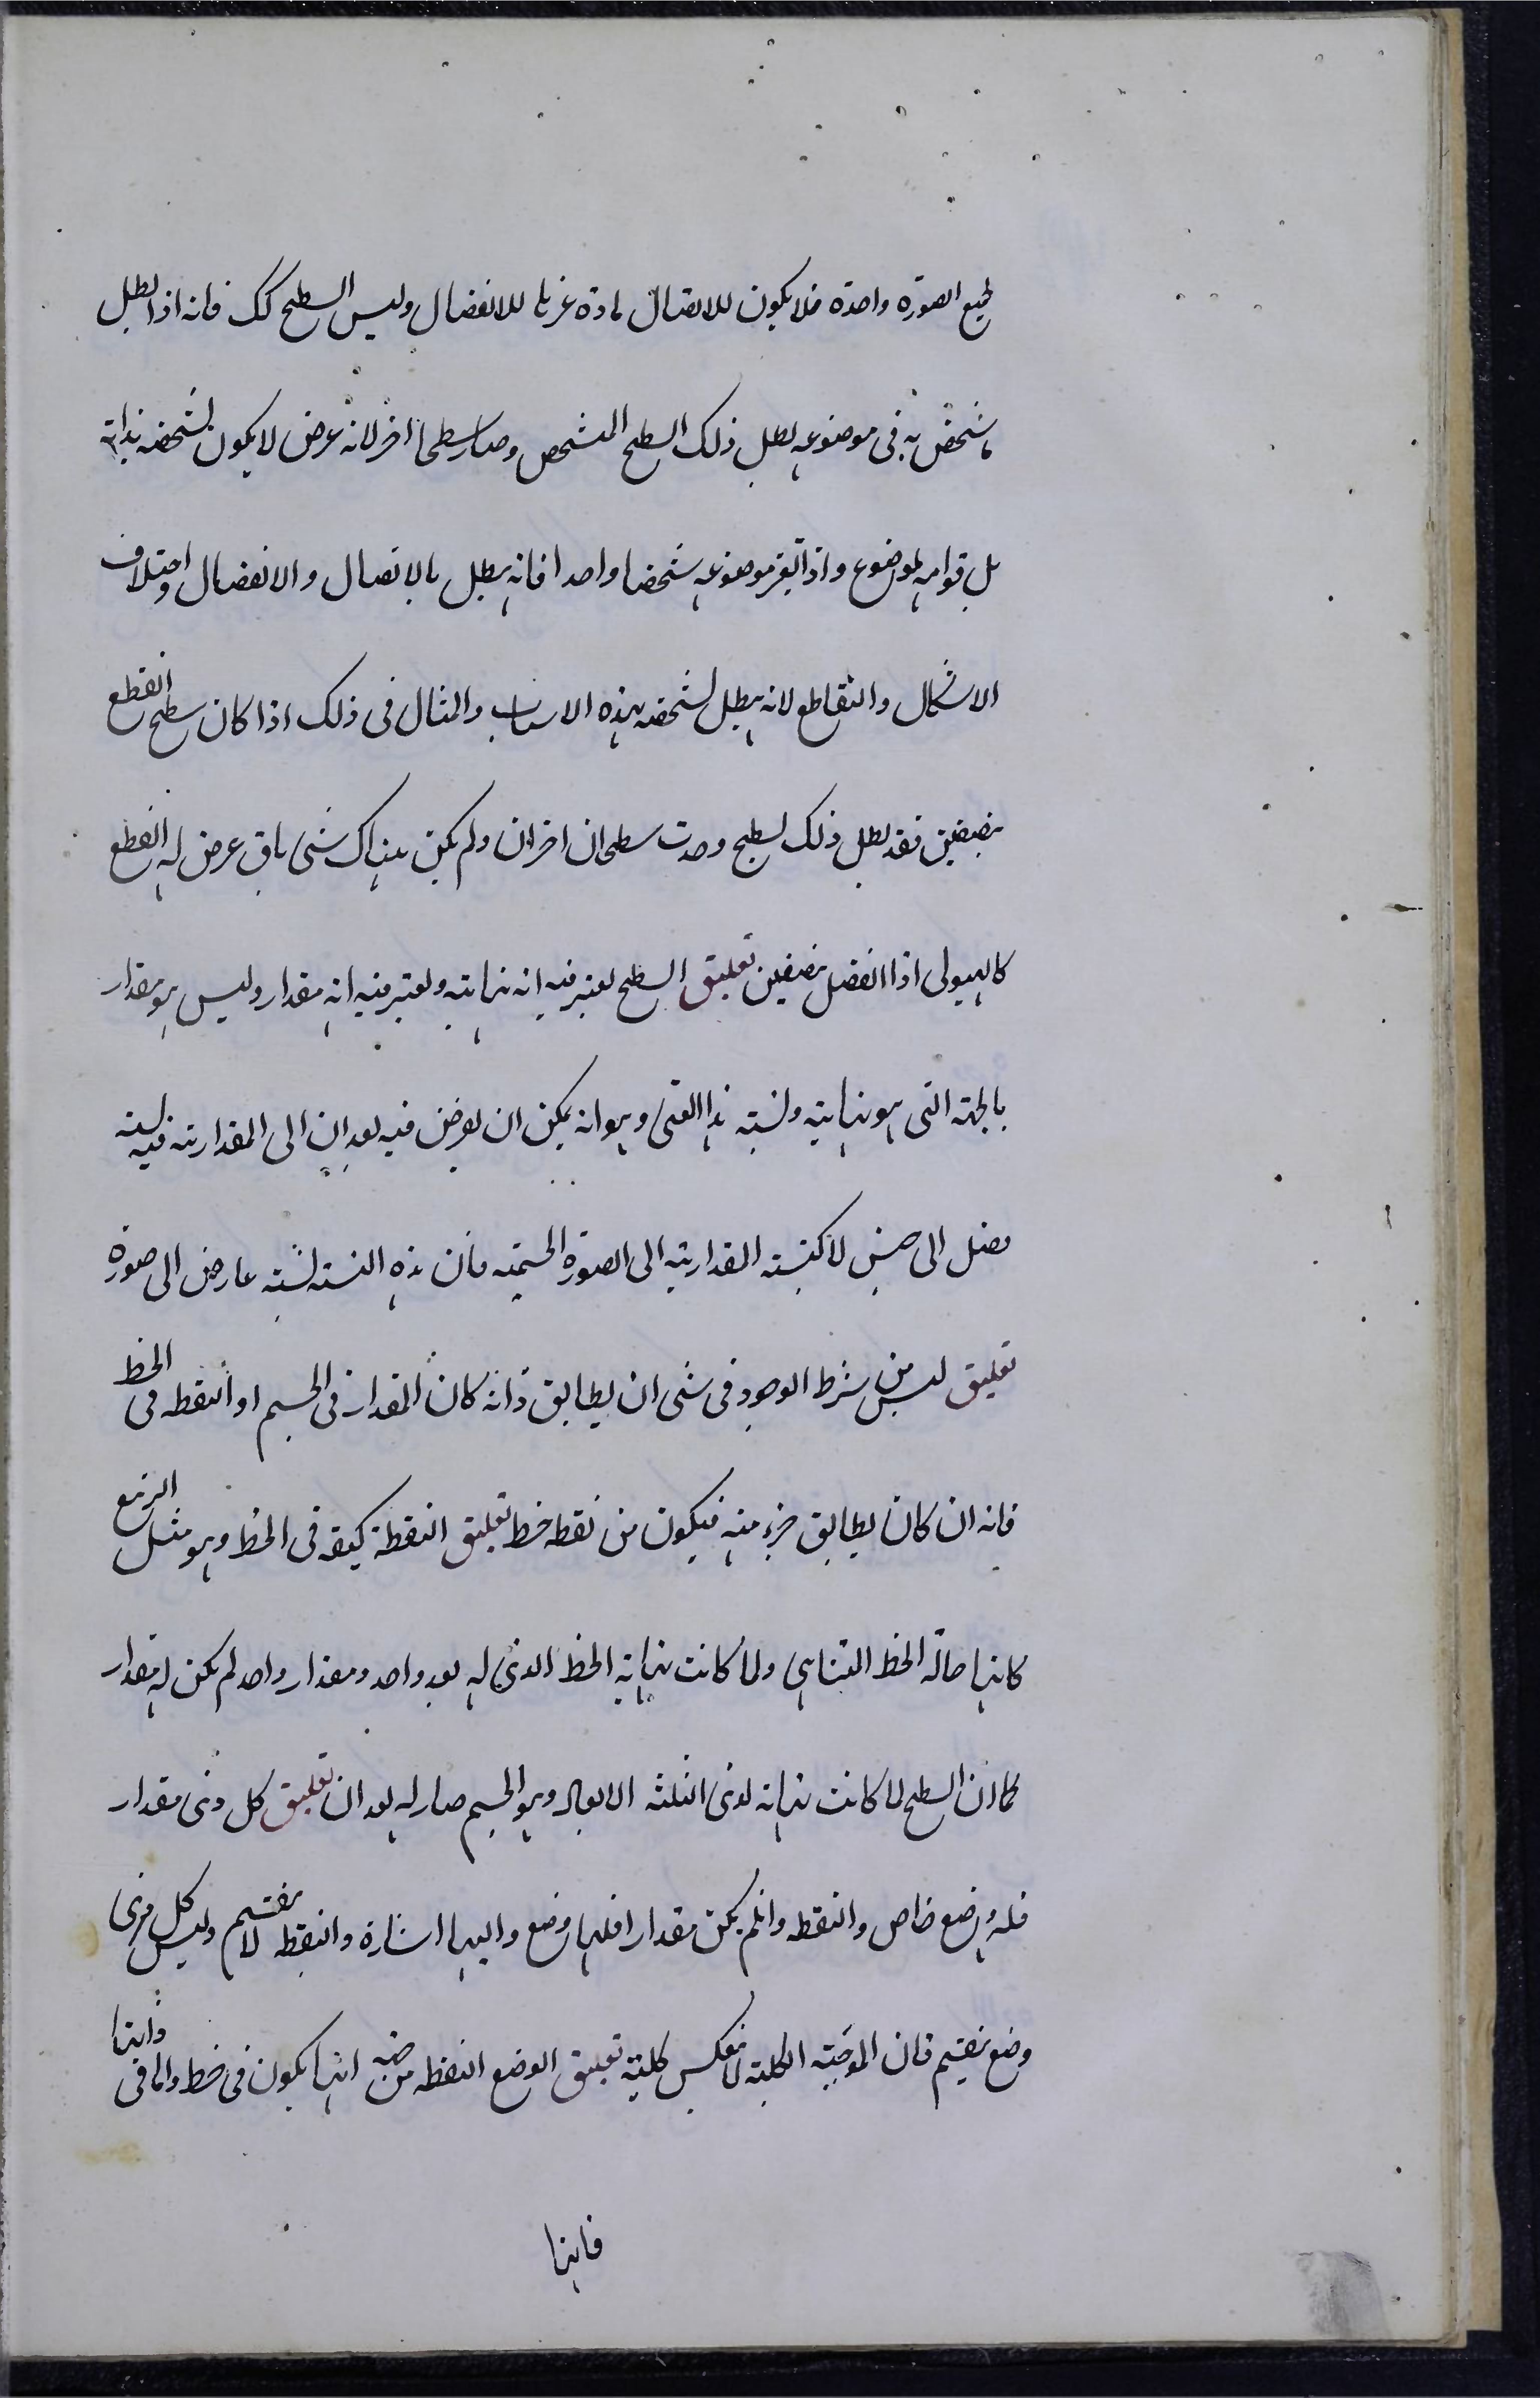 لجميع الصورة واحدة فلا يكون للاتصال مادة غيرها للانفصال وليس السطح كك فانه اذا بطل
ما تشخص به فى موضوعه بطل ذلك السطح المتشخص وصار سطحا اخر لانه عرض لا يكون تشخصه بذاته
بل قوامه بموضوع واذا تغير موضوعه شخصا واحدا فانه يبطل بالاتصال والانفصال واختلاف
الاشكال والتقاطع لانه يبطل تشخصه بهذه الاسباب والمثال فى ذلك اذا كان سطح انقطع
بنصفين فقد بطل ذلك السطح وحدث سطحان اخران ولم يكن هناك شئ باق عرض له القطع
كالهيولى اذا انفصل بنصفين تعليق السطح يعتبر فيه انه نهاية ويعتبر فيه انه مقدار وليس هو مقدار
بالجهة التى هو نهاية ونسبة هذا المعنى وهو انه يمكن ان يفرض فيه بعدان الى المقدارية فيه نسبة
فصل الى جنس لا كنسبة المقدارية الى الصورة الجسمية فان هذه النسبة نسبة عارض الى صورة
تعليق ليس من شرط الوجود فى شئ ان يطابق ذاته كان المقدار فى الجسم او النقطه فى الخط
فانه ان كان يطابق جزء منه فيكون من نقطه خط تعليق النقطة كيفية فى الخط وهو مثل التربيع
كانها حالة الخط المتناهى ولما كانت نهاية الخط الذى له بعد واحد ومقدار واحد لم يكن له مقدار
كما ان السطح لما كانت نهاية لذى الثلثة الابعاد وهو الجسم صار له بعدان تعليق كل ذى مقدار
فله وضع خاص والنقطه وان لم يكن مقدارا فلها وضع واليها اشارة والنقطه لا ينقسم وليس كل ذى
وضع ينقسم فان الموجبة الكلية لا تنعكس كلية تعليق الوضع النقطه من جهة انها يكون فى خط وانها فى
فانها